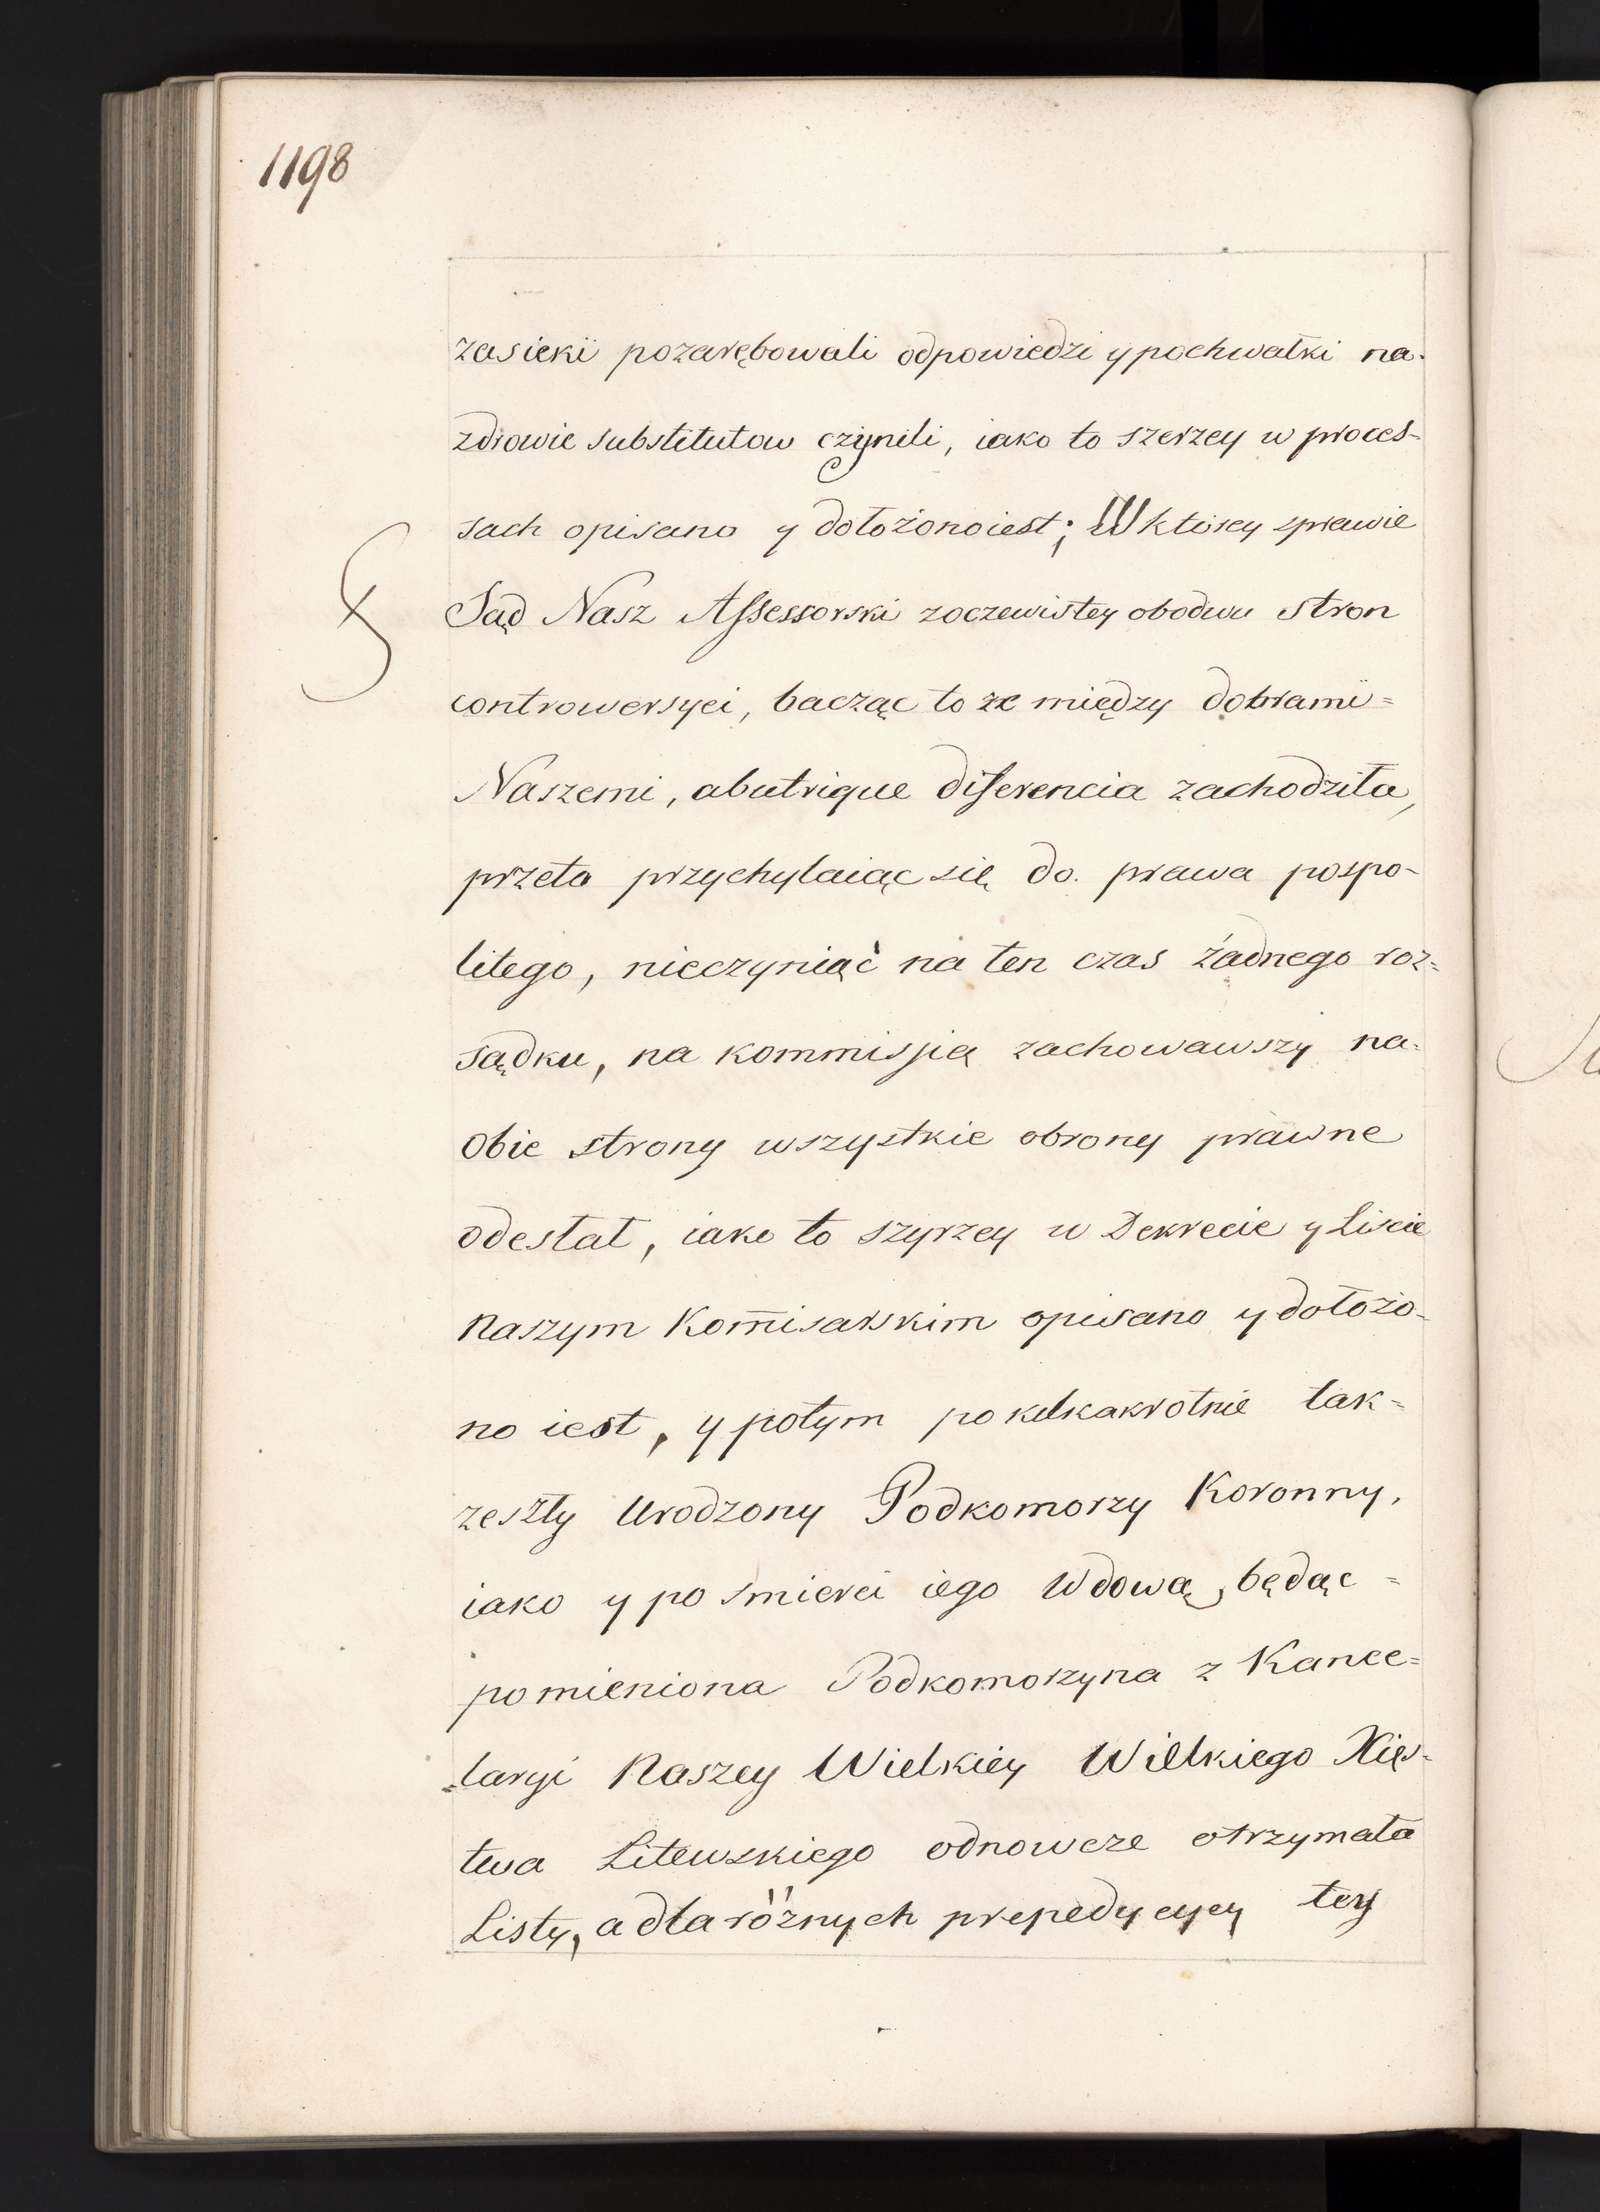 1198
zasieki pozarębowali odpowiedzi y pochwałki na-
zdrowie substitutow czynili, iako to szerzey w proces-
sach opisano y dołożono iest; W ktorey sprawie
Sąd Nasz Assessorski zoczewistey obodwu stron
controwersyei, bacząc to ze między dobrami=
Naszemi, abutrique diferencia zachodziła,
przeto przychylaiąc się do prawa pospo-
litego, nieczyniąc na ten czas żadnego roz=
sądku, na kommisyią zachowawszy na-
obie strony wszystkie obrony prawne
odesłał, iako to szyrzey w Dekrecie y Liscie
naszym Kom̃isarskim opisano y dołożo-
no iest, y potym po kilkakrotnie tak=
zeszły Urodzony Podkomorzy Koronny,
iako y po smierci iego Wdową, będąc=
pomieniona Podkomorzyna z Kance=
=laryi Naszey Wielkiey Wielkiego Xięs-
twa Litewskiego odnowcze otrzymała
Listy, a dla różnych prepedycyey tey